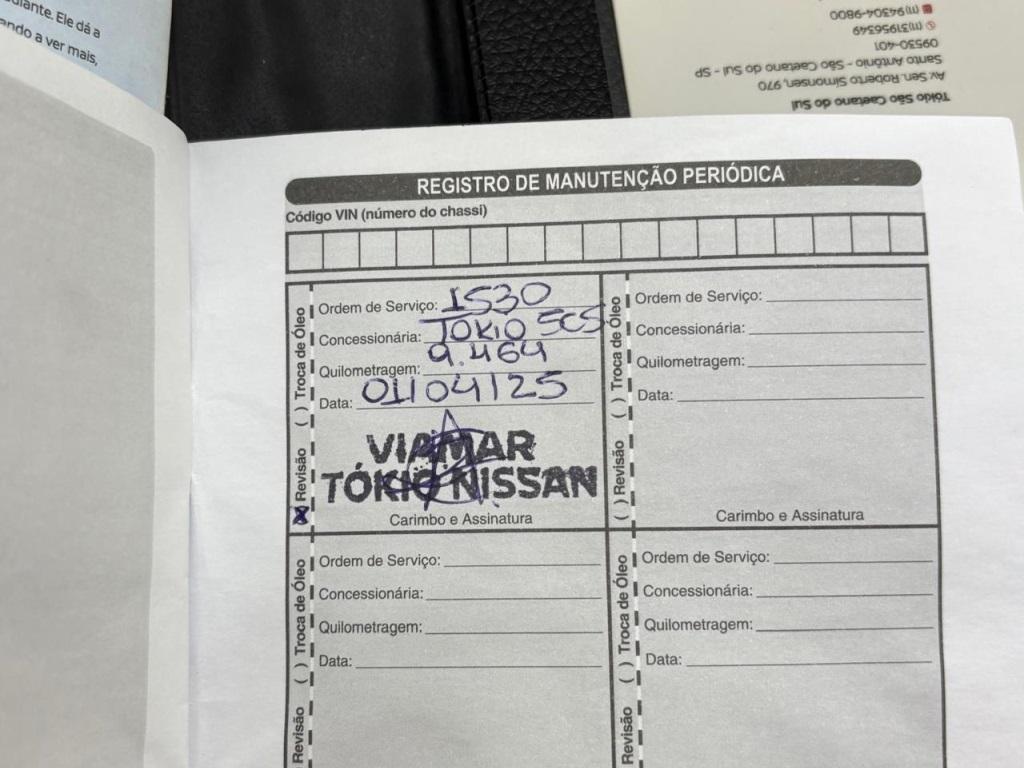 diante. Ele dá a
ando a ver mais,
(11)94304-9800
(11)31956349
09530-401
Santo Antônio - São Caetano do Sul - SP
Av. Sen. Roberto Simonsen, 970,
Tókio São Caetano do Sul
REGISTRO DE MANUTENÇÃO PERIÓDICA
Código VIN (número do chassi)
( ) Troca de Óleo
X Revisão
Ordem de Serviço: 1530
Concessionária: TOKIO SCS
Quilometragem: 9.464
Data: 01/04/25
VIAMAR
TÓKIO NISSAN
Carimbo e Assinatura
( ) Troca de Óleo
( ) Revisão
Ordem de Serviço:
Concessionária:
Quilometragem:
Data:
Carimbo e Assinatura
( ) Troca de Óleo
Revisão
Ordem de Serviço:
Concessionária:
Quilometragem:
Data:
( ) Troca de Óleo
Revisão
Ordem de Serviço:
Concessionária:
Quilometragem:
Data: